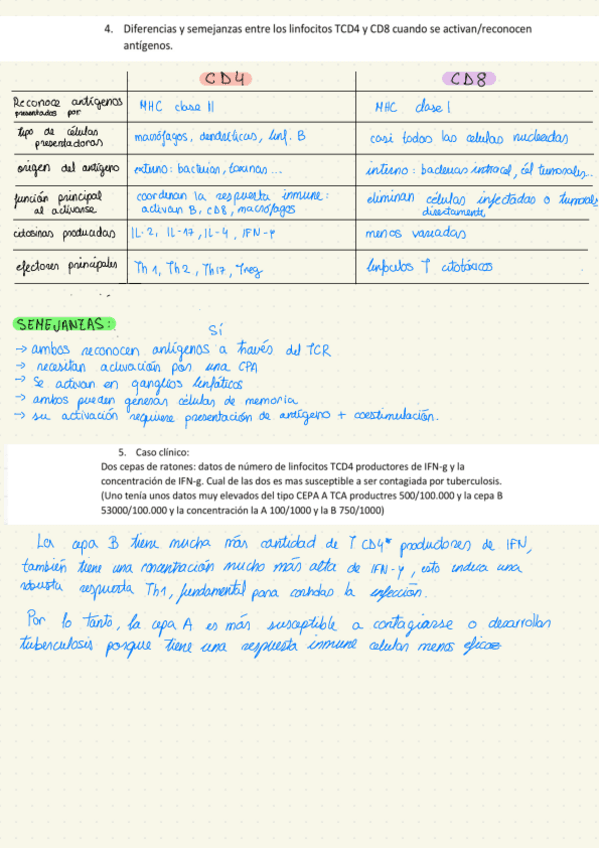 4. Diferencias y semejanzas entre los linfocitos TCD4 y CD8 cuando se activan/reconocen
antígenos.
CD4 CD8
Reconoce antígenos presentados por MHC clase II MHC clase I
tipo de células presentadoras macrófagos, dendríticas, linf. B casi todas las celulas nucleadas
origen del antígeno externo: bacterias, toxinas... interno: bacterias intracel, cél tumorales..
función principal al activarse coordinan la respuesta inmune: activan B, CD8, macrófagos eliminan células infectadas o tumorales directamente
citosinas producidas IL-2, IL-17, IL-4, IFN-γ menos variadas
efectores principales Th1, Th2, Th17, Treg linfocitos T citotóxicos
SEMEJANZAS:
SÍ
→ ambos reconocen antígenos a través del TCR
→ necesitan activación por una CPA
→ Se activan en ganglios linfáticos
→ ambos pueden generar células de memoria
→ su activación requiere presentación de antígeno + coestimulación.
5. Caso clínico:
Dos cepas de ratones: datos de número de linfocitos TCD4 productores de IFN-g y la
concentración de IFN-g. Cual de las dos es mas susceptible a ser contagiada por tuberculosis.
(Uno tenía unos datos muy elevados del tipo CEPA A TCA productres 500/100.000 y la cepa B
53000/100.000 y la concentración la A 100/1000 y la B 750/1000)
La cepa B tiene mucha más cantidad de T CD4+ productores de IFN,
también tiene una concentración mucho más alta de IFN-γ, esto indica una
robusta respuesta Th1, fundamental para controlar la infección.
Por lo tanto, la cepa A es más susceptible a contagiarse o desarrollar
tuberculosis porque tiene una respuesta inmune celular menos eficaz